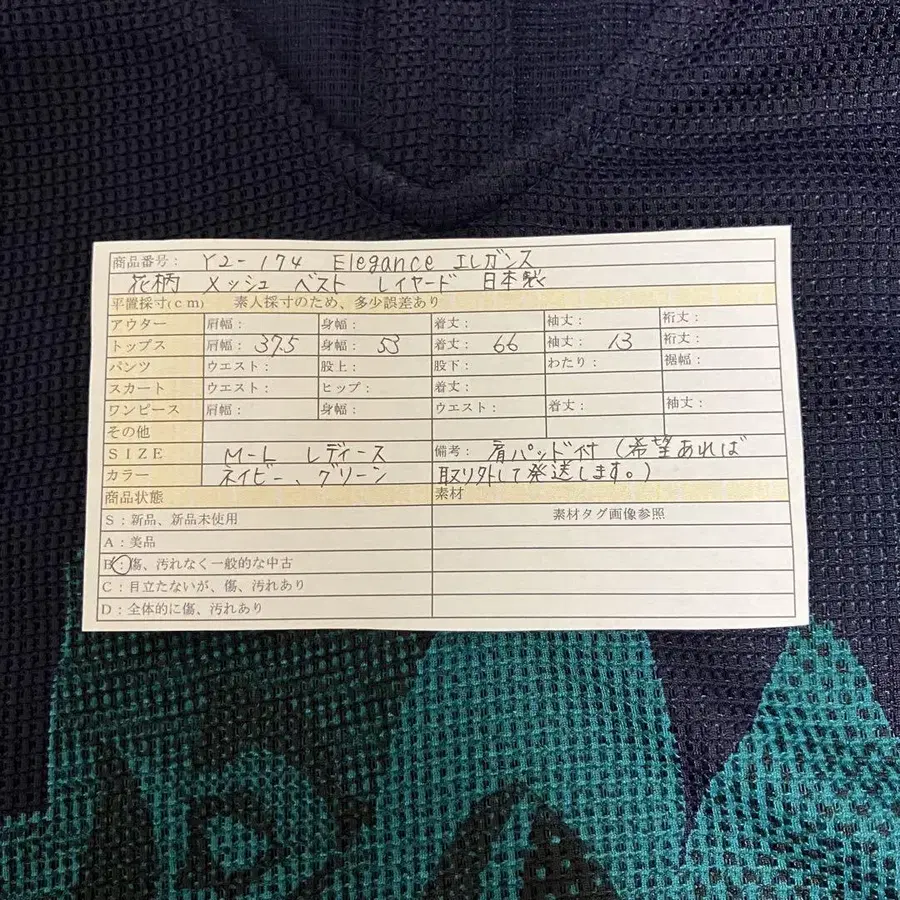 商品番号： Y2-174 Elegance エレガンス
花柄 メッシュ ベスト レイヤード 日本製
平置採寸(ｃｍ) 素人採寸のため、多少誤差あり
アウター 肩幅： 身幅： 着丈： 袖丈： 裄丈：
トップス 肩幅： 37.5 身幅： 53 着丈： 66 袖丈： 13 裄丈：
パンツ ウエスト： 股上： 股下： わたり： 裾幅：
スカート ウエスト： ヒップ： 着丈：
ワンピース 肩幅： 身幅： ウエスト： 着丈： 袖丈：
その他
ＳＩＺＥ M-L レディース 備考： 肩パッド付（希望あれば
カラー ネイビー、グリーン 取り外して発送します。）
商品状態 素材
Ｓ：新品、新品未使用 素材タグ画像参照
Ａ：美品
Ｂ：傷、汚れなく一般的な中古
Ｃ：目立たないが、傷、汚れあり
Ｄ：全体的に傷、汚れあり